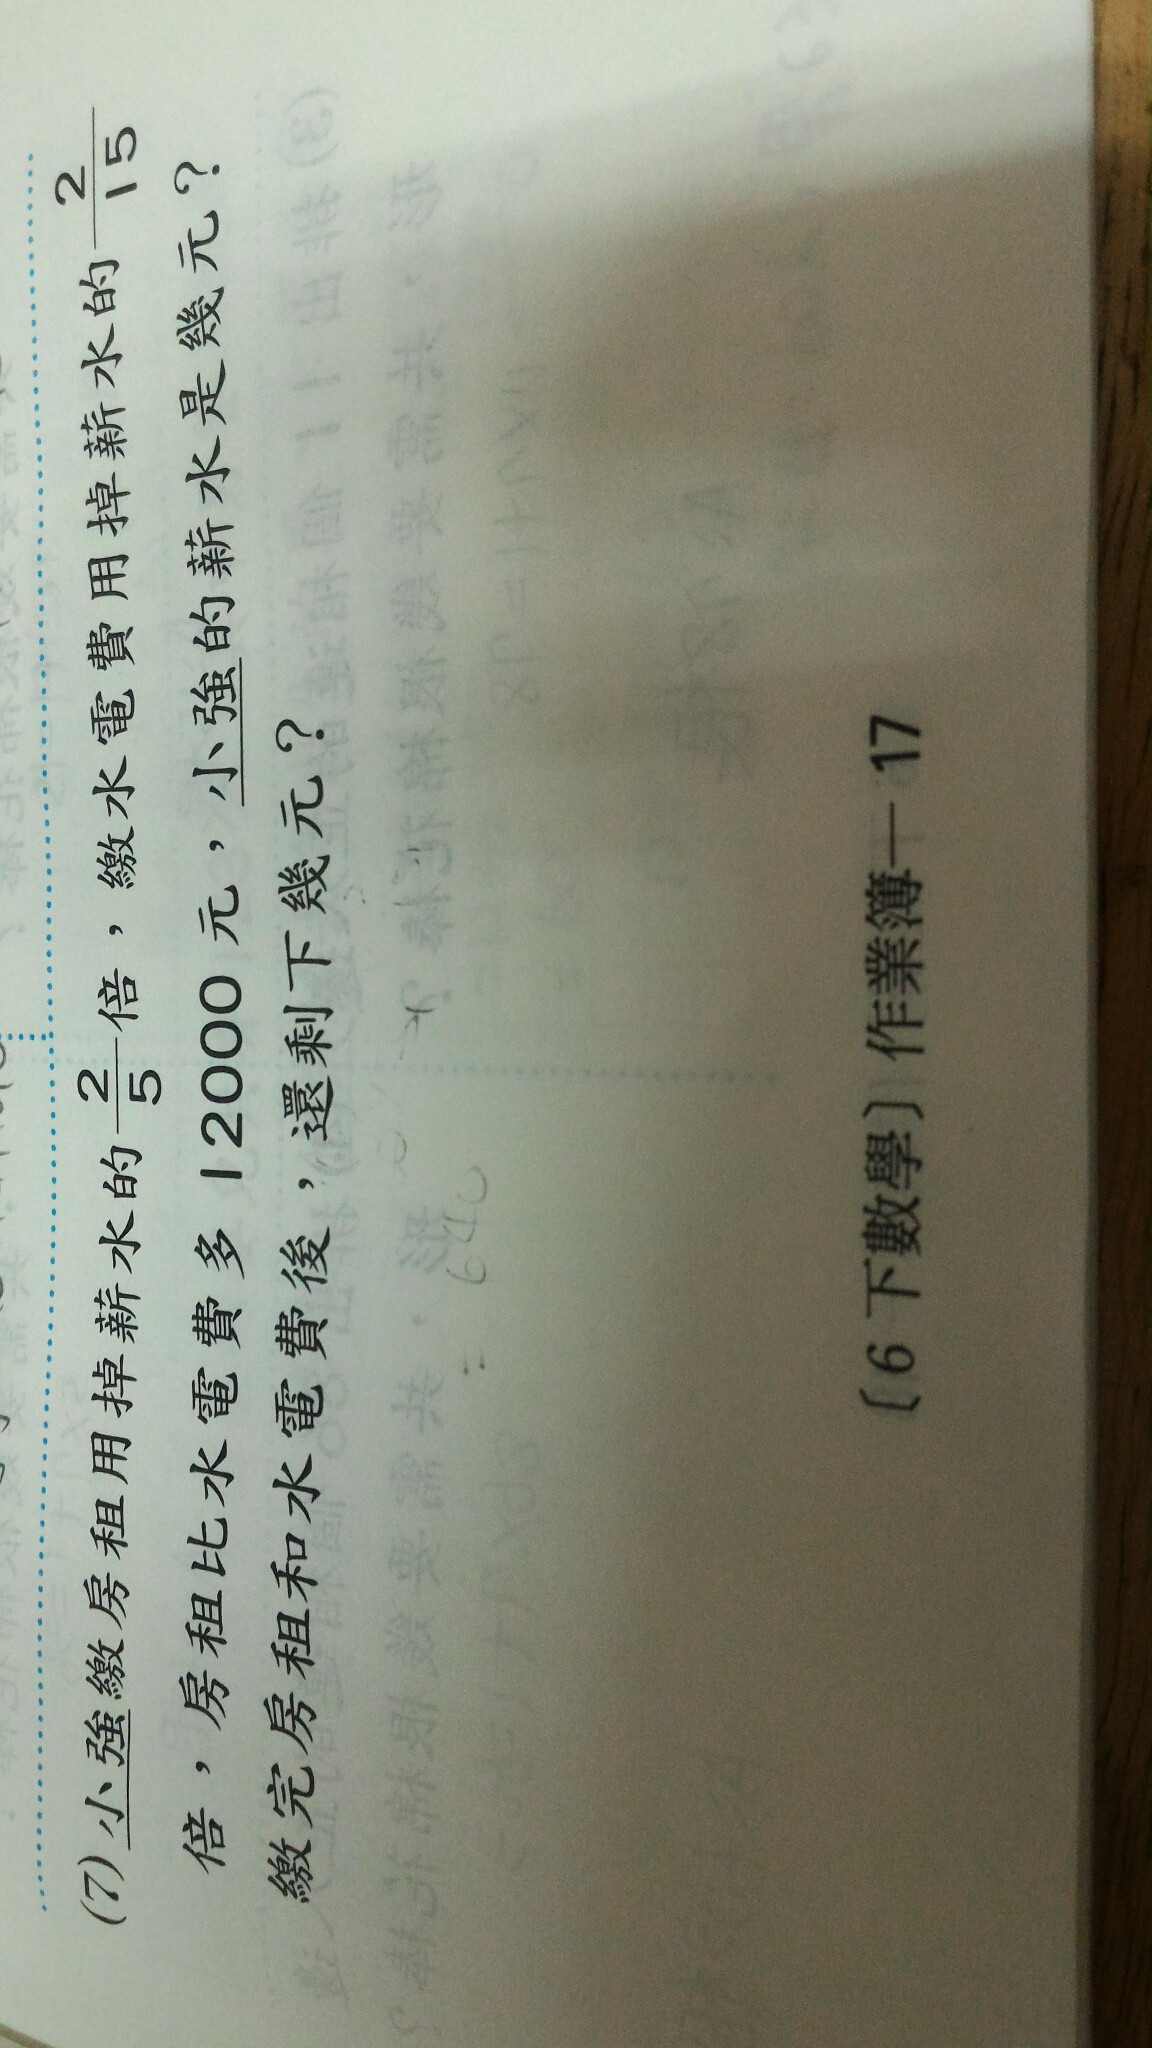 (7) 小強繳房租用掉薪水的2/5倍，繳水電費用掉薪水的2/15
倍，房租比水電費多 12000 元，小強的薪水是幾元？
繳完房租和水電費後，還剩下幾元？
〔6 下數學〕作業簿－17